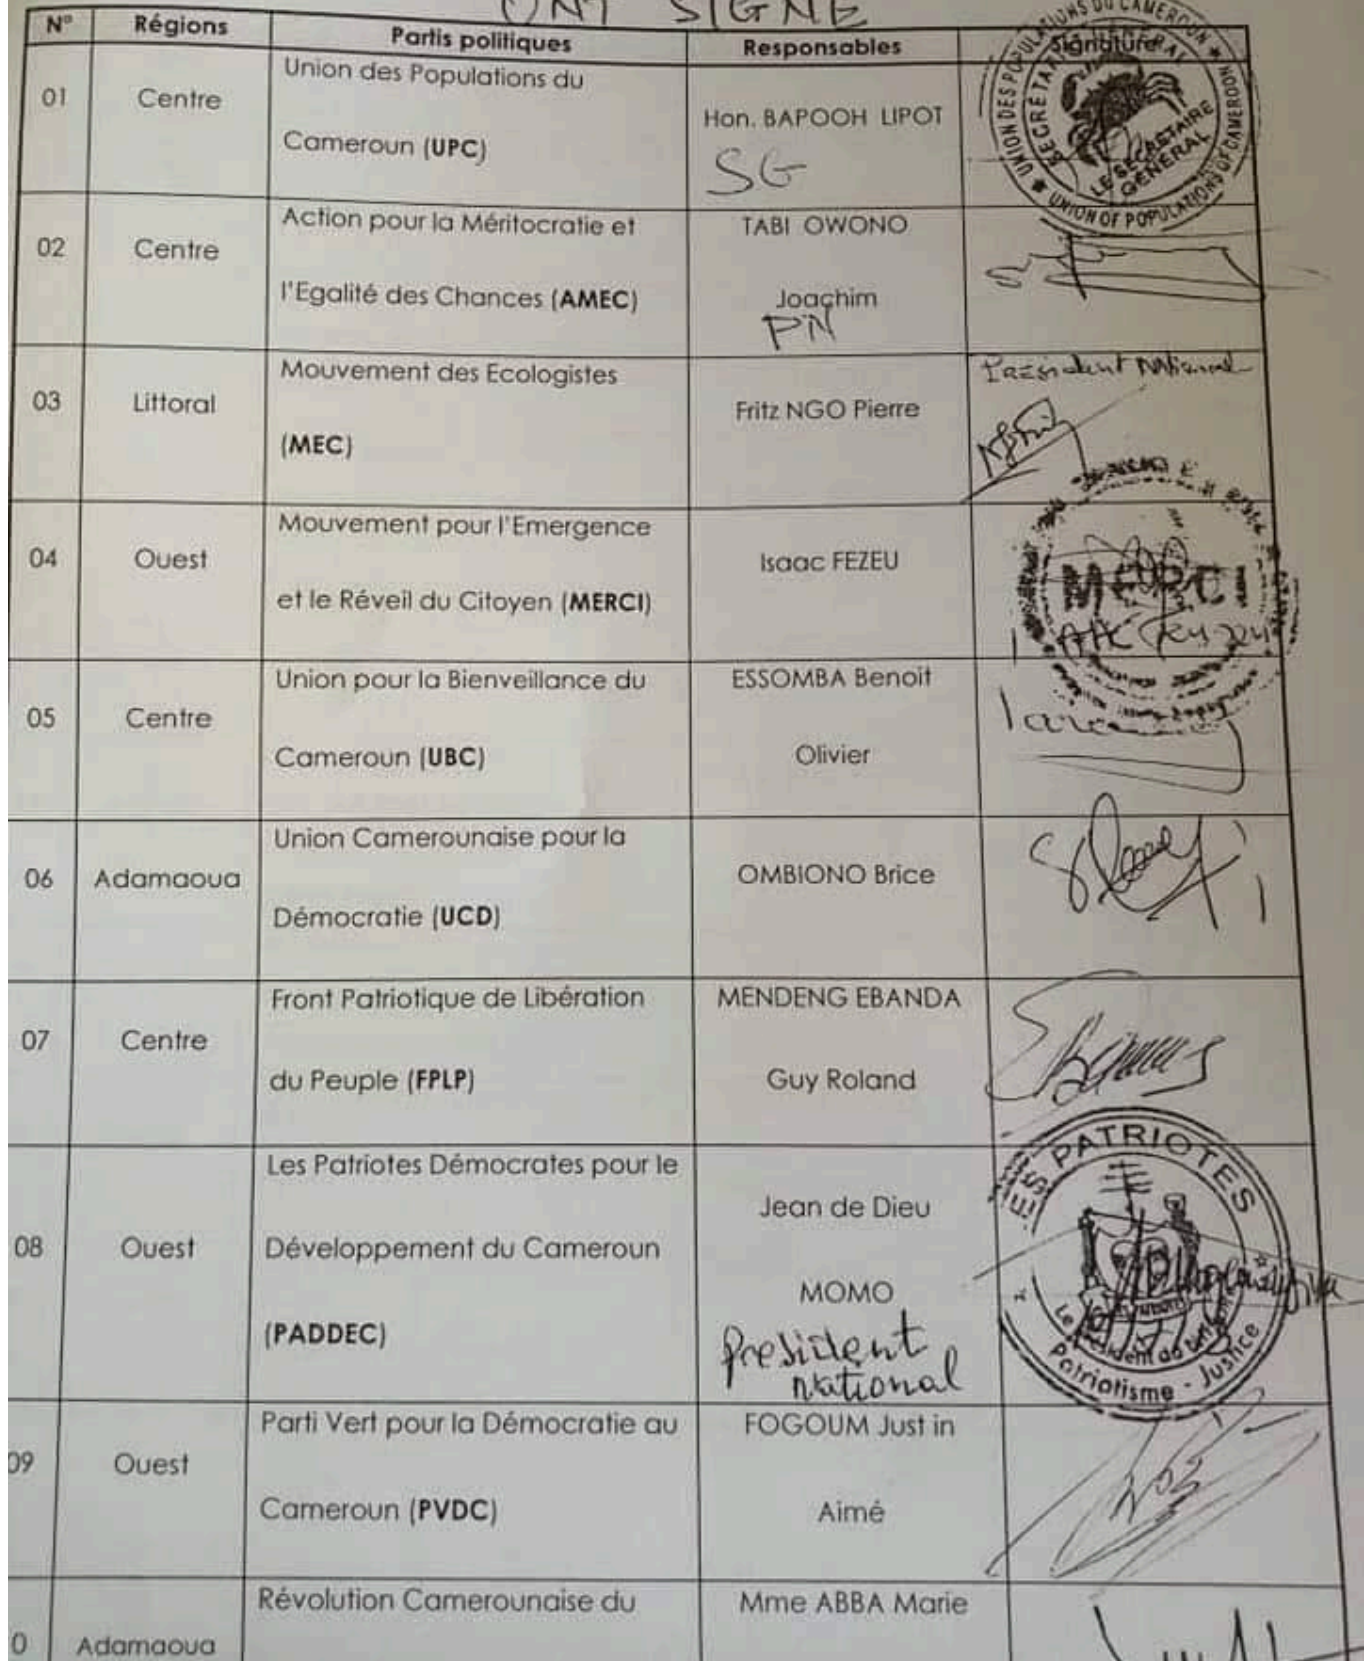 ONT SIGNE
N° Régions Partis politiques Responsables Signature
01 Centre Union des Populations du
Cameroun (UPC)
Hon. BAPOOH LIPOT
SG
UNION DES POPULATIONS DU CAMEROUN
SECRETARIAT GENERAL
LE SECRETAIRE
GENERAL
UNION OF POPULATIONS OF CAMEROON
02 Centre Action pour la Méritocratie et
l'Egalité des Chances (AMEC)
TABI OWONO
Joachim
PN
03 Littoral Mouvement des Ecologistes
(MEC)
Fritz NGO Pierre
President National
04 Ouest Mouvement pour l'Emergence
et le Réveil du Citoyen (MERCI)
Isaac FEZEU
MERCI
05 Centre Union pour la Bienveillance du
Cameroun (UBC)
ESSOMBA Benoit
Olivier
06 Adamaoua Union Camerounaise pour la
Démocratie (UCD)
OMBIONO Brice
07 Centre Front Patriotique de Libération
du Peuple (FPLP)
MENDENG EBANDA
Guy Roland
08 Ouest Les Patriotes Démocrates pour le
Développement du Cameroun
(PADDEC)
Jean de Dieu
MOMO
President
National
LES PATRIOTES
Le President
Patriotisme - Justice
09 Ouest Parti Vert pour la Démocratie au
Cameroun (PVDC)
FOGOUM Just in
Aimé
0 Adamaoua Révolution Camerounaise du
Mme ABBA Marie